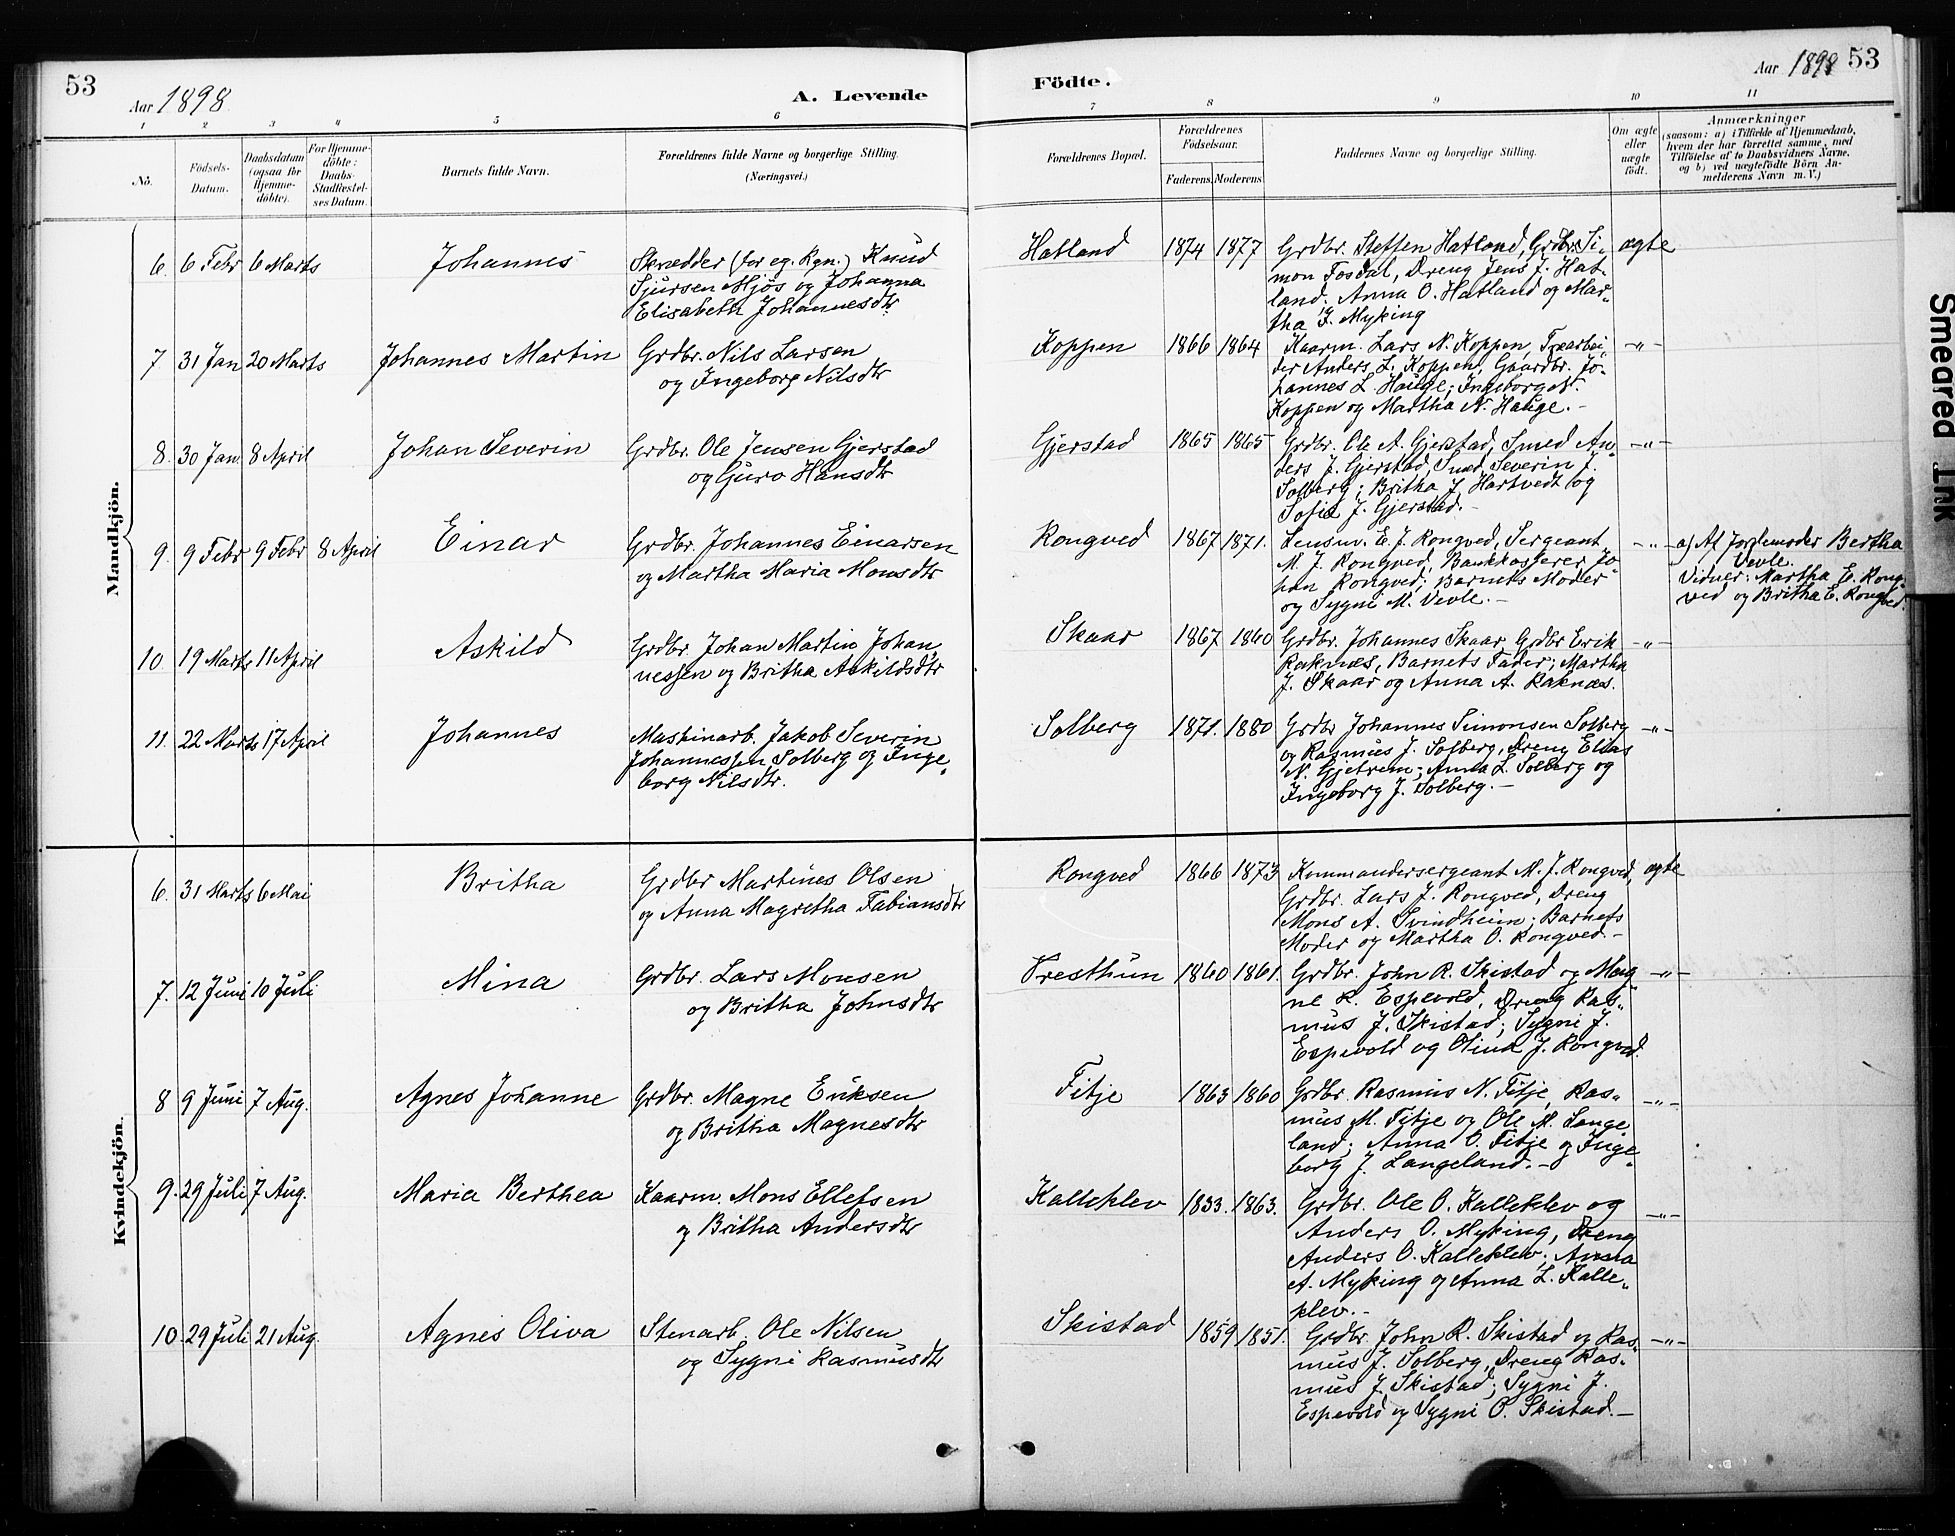 53
Aar 1898.
A. Levende
Födte.
Aar 1898
53
1
2
3
4
5
6
7
8
9
10
11
No.
Födsels-
Datum.
Daabsdatum
(ogsaa for
Hjemme-
döbte).
For Hjemme-
döbte:
Daabs-
Stadfæstel-
ses Datum.
Barnets fulde Navn.
Forældrenes fulde Navne og borgerlige Stilling.
(Næringsvei.)
Forældrenes Bopæl.
Forældrenes
Födselsaar.
Faderens.
Moderens.
Faddernes Navne og borgerlige Stilling.
Om ægte
eller
uægte
födt.
Anmærkninger
(saasom: a) i Tilfælde af Hjemmedaab,
hvem der har forrettet samme, med
Tilföielse af to Daabsvidners Navne,
og b) ved uægtefödte Börn An-
melderens Navn m. V.)
Mandkjön.
6. 6 Febr 6 Marts
Johannes
Skrædder (for eg. Rgn.) Knud
Sjursen Mjös og Johanna
Elisabeth Johannesdtr
Hatland
1874 1877
Grdbr. Steffen Hatland, Grdbr. Si-
mon Fosdal, Dreng Jens J. Hat-
land. Anna O. Hatland og Mar-
tha J. Myking
ægte
7 31 Jan 20 Marts
Johannes Martin
Grdbr. Nils Larsen
og Ingeborg Nilsdtr
Koppen
1866 1864
Kaarm. Lars N. Koppen, Træarbei-
der Anders L. Koppen, Gaardbr. Jo-
hannes L. Hauge; Ingeborg
Koppen og Martha N. Hauge.-
-"-
8. 30 Jan. 8 April
Johan Severin
Grdbr. Ole Jensen Gjerstad
og Guro Hansdtr
Gjerstad
1865 1865
Grdbr. Ole A. Gjerstad, Smed An-
ders J. Gjerstad, Smed Severin J.
Solberg; Britha J. Hartvedt og
Sofie J. Gjerstad.-
-"-
9. 9 Febr 9 Febr 8 April
Einar
Grdbr. Johannes Einarsen
og Martha Maria Monsdtr
Rongved
1867 1871.
Lensm. E. J. Rongved, Sergeant
M. J. Rongved, Bankkasserer Jo-
han Rongved; Barnets Moder
og Sygni M. Vevle.-
-"-
a) Af Jordemoder Bertha
Vevle.
Vidner: Martha E. Rong-
ved og Britha E. Rongved.
10. 19 Marts 11 April
Askild
Grdbr. Johan Martin Johan-
nessen og Britha Askildsdtr
Skaar
1867 1860
Grdbr. Johannes Skaar, Grdbr Erik
Raknes, Barnets Fader; Martha
J. Skaar og Anna A. Raknæs.
-"-
11. 22 Marts 17 April
Johannes
Maskinarb. Jakob Severin
Johannessen Solberg og Inge-
borg Nilsdtr.
Solberg
1871. 1880
Grdbr Johannes Simonsen Solberg
og Rasmus J. Solberg, Dreng Elias
N. Gjetrem; Anna L. Solberg og
Ingeborg J. Solberg.-
-"-
Kvindekjön.
6. 31 Marts 6 Mai
Britha
Grdbr Martines Olsen
og Anna Magretha Fabiansdtr
Rongved
1866 1873
Kommandersergeant M. J. Rongved,
Grdbr. Lars J. Rongved, Dreng
Mons A. Svindheim; Barnets
Moder og Martha O. Rongved.-
ægte
7. 12 Juni 10 Juli
Mina
Grdbr. Lars Monsen
og Britha Johnsdtr
Vresthun
1860 1861.
Grdbr. John R. Skistad og Mag-
ne R. Espevold, Dreng Ras-
mus J. Skistad; Sygni J.
Espevold og Olina J. Rongved.
-"-
8 9 Juni 7 Aug.
Agnes Johanne
Grdbr. Magne Eriksen
og Britha Magnesdtr
Fitje
1863 1860
Grdbr. Rasmus N. Fitje, Ras-
mus M. Fitje og Ole M. Lange-
land; Anna O. Fitje og Inge-
borg J. Langeland.-
-"-
9. 29 Juli 7 Aug.
Maria Berthea
Kaarm. Mons Ellefsen
og Britha Andersdtr
Kalleklev
1833. 1863.
Grdbr. Ole O. Kalleklev og
Anders O. Myking, Dreng
Anders O. Kalleklev; Anna
A. Myking og Anna L. Kalle-
klev.-
-"-
10. 29 Juli 21 Aug.
Agnes Oliva
Stenarb. Ole Nilsen
og Sygni Rasmusdtr
Skistad
1859 1851.
Grdbr. John R. Skistad og Ras-
mus J. Solberg, Dreng Ras-
mus J. Skistad; Sygni J.
Espevold og Sygni O. Skistad.-
-"-
Smeared Ink